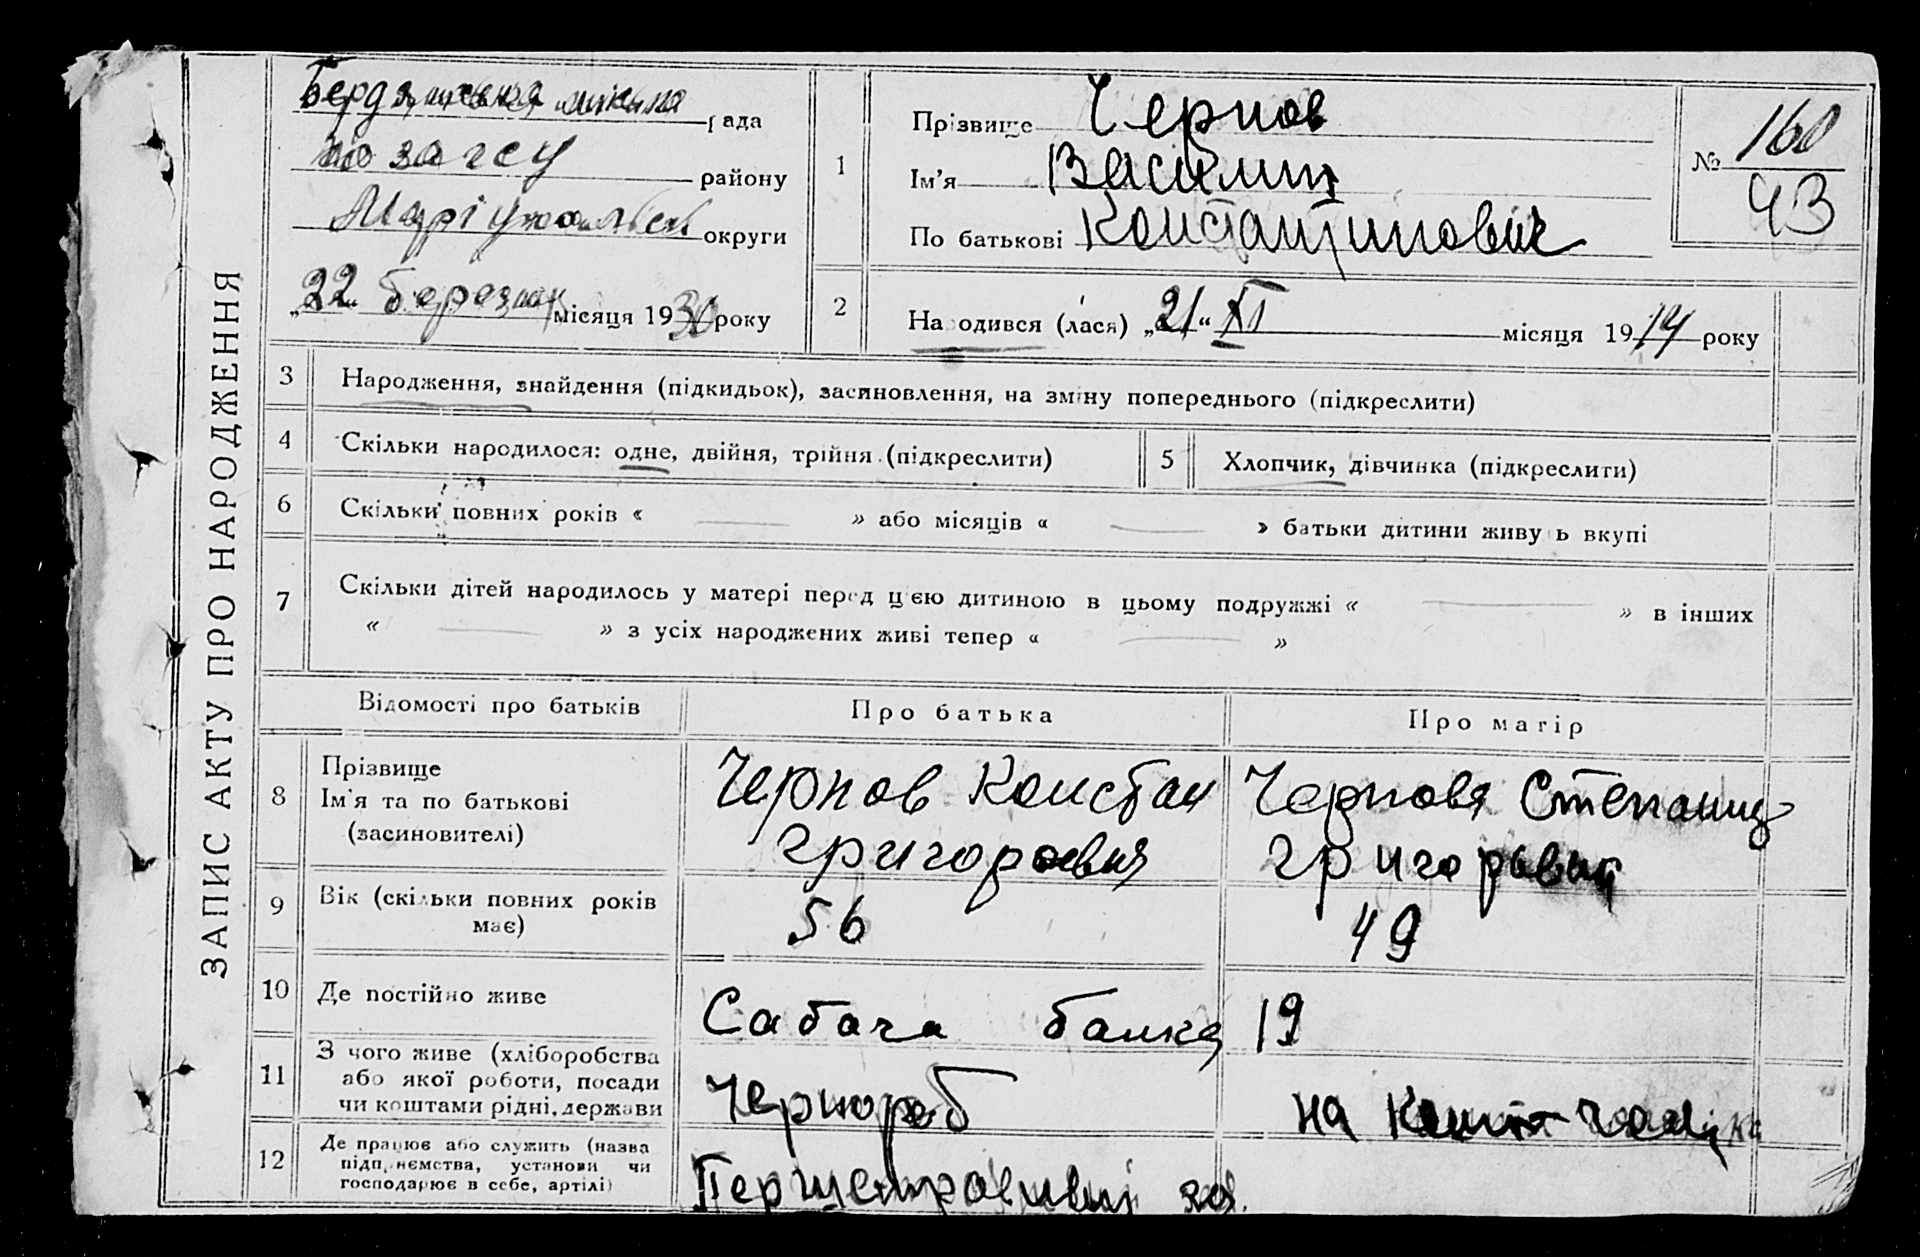 ЗАПИС АКТУ ПРО НАРОДЖЕННЯ
Бердянська міська рада
по загсу району
Маріупольськ округи
„22“ березня місяця 1930 року
1
Прізвище Чернов
Ім'я Василий
По батькові Константинович
№ 160
43
2
Народився (лася) „21“ XI місяця 1914 року
3 Народження, знайдення (підкидьок), засиновлення, на зміну попереднього (підкреслити)
4 Скільки народилося: одне, двійня, трійня (підкреслити)
5 Хлопчик, дівчинка (підкреслити)
6 Скільки повних років « — » або місяців « — » батьки дитини живуть вкупі
7 Скільки дітей народилось у матері перед цією дитиною в цьому подружжі « — » в інших
« — » з усіх народжених живі тепер « — »
Відомості про батьків
Про батька
Про матір
8
Прізвище
Ім'я та по батькові
(засиновителі)
Чернов Констан
Григорович
Чернова Степанид
Григорьевна
9
Вік (скільки повних років
має)
56
49
10 Де постійно живе
Сабача балка 19
11
З чого живе (хліборобства
або якої роботи, посади
чи коштами рідні, держави
Чернороб
на кошти чоловіка
12
Де працює або служить (назва
підприємства, установи чи
господарює в себе, артілі)